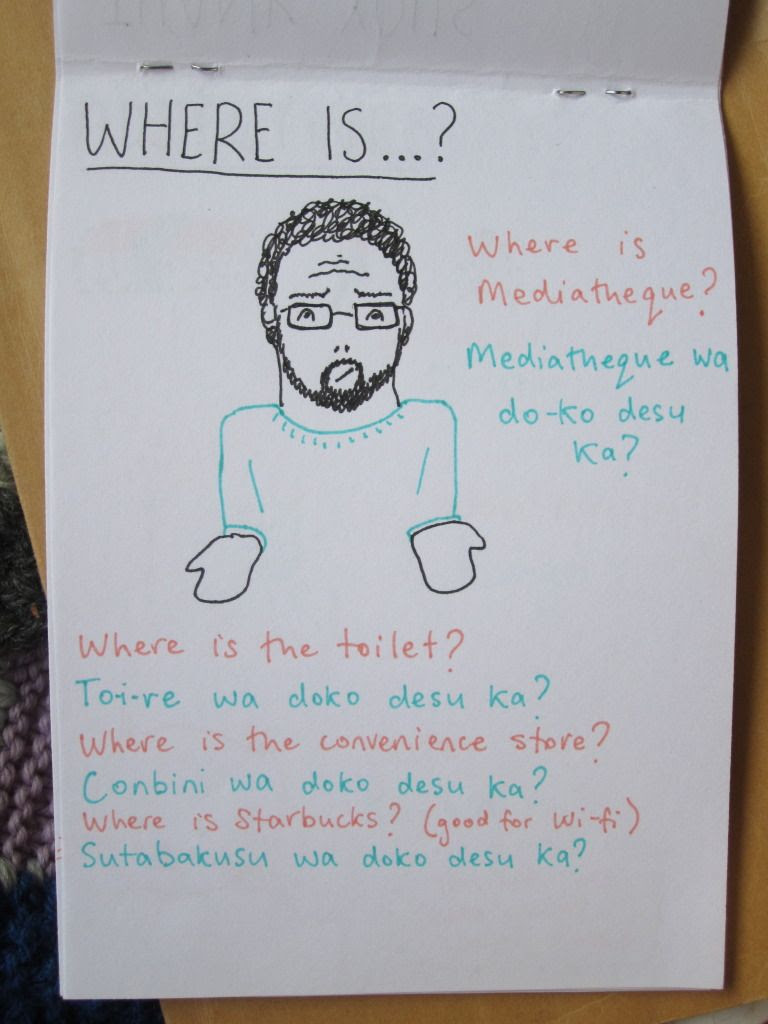 WHERE IS...?
Where is
Mediatheque?
Mediatheque wa
do-ko desu
ka?
Where is the toilet?
To-i-re wa doko desu ka?
Where is the convenience store?
Conbini wa doko desu ka?
Where is Starbucks? (good for wi-fi)
Sutabakusu wa doko desu ka?